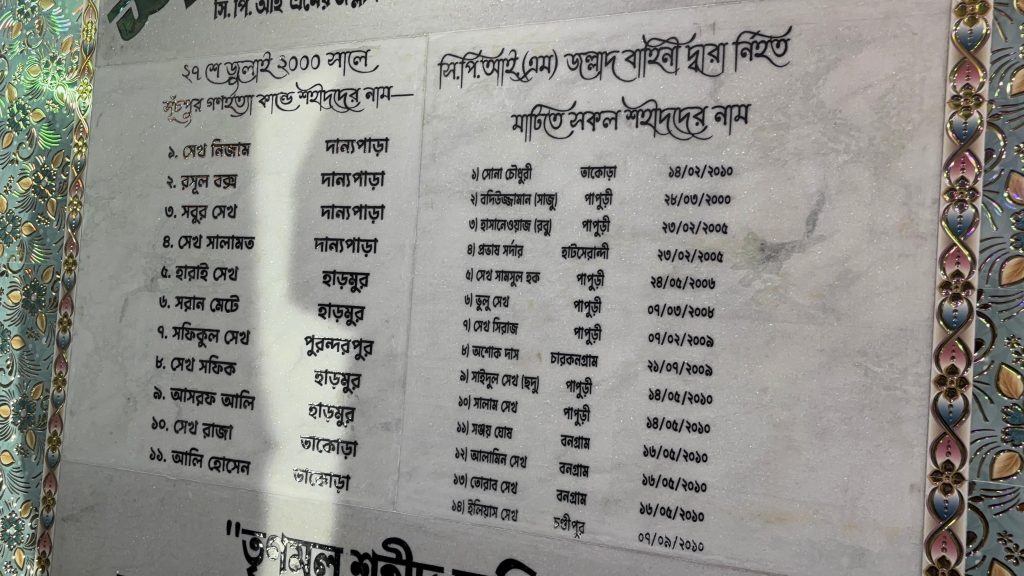 সি. পি. আই এমের
২৭ শে জুলাই ২০০০ সালে
সূঁচপুর গণহত্যা কান্ডে শহীদদের নাম—
১. সেখ নিজাম দান্যপাড়া
২. রসুল বক্স দান্যপাড়া
৩. সবুর সেখ দান্যপাড়া
৪. সেখ সালামত দান্যপাড়া
৫. হারাই সেখ হাড়মুর
৬. সরান মেটে হাড়মুর
৭. সফিকুল সেখ পুরন্দরপুর
৮. সেখ সফিক হাড়মুর
৯. আসরফ আলি হাড়মুর
১০. সেখ রাজা তাকোড়া
১১. আলি হোসেন তাকোড়া
সি.পি.আই (এম) জল্লাদ বাহিনী দ্বারা নিহত
মাটিতে সকল শহীদদের নাম
১) সোনা চৌধুরী তাকোড়া ১৪/০২/২০১০
২) বদিউজ্জামান (সাজু) পাপুড়ী ২৮/০৩/২০০০
৩) হাসানেওয়াজ (রবু) পাপুড়ী ২৩/০২/২০০৫
৪) প্রভাষ সর্দার হাটসেরান্দী ২৩/০২/২০০৫
৫) সেখ সামসুল হক পাপুড়ী ২৪/০৫/২০০৬
৬) ভুলু সেখ পাপুড়ী ০৭/০৩/২০০৮
৭) সেখ সিরাজ পাপুড়ী ০৭/০২/২০০৯
৮) অশোক দাস চারকলগ্রাম ২১/০৭/২০০৯
৯) সাইদুল সেখ (ছদু) পাপুড়ী ১৪/০৫/২০১০
১০) সালাম সেখ পাপুড়ী ১৪/০৫/২০১০
১১) সঞ্জয় ঘোষ বনগ্রাম ১৬/০৫/২০১০
১২) আলামিন সেখ বনগ্রাম ১৬/০৫/২০১০
১৩) তোরাব সেখ বনগ্রাম ১৬/০৫/২০১০
১৪) ইলিয়াস সেখ চণ্ডীপুর ০৭/০৯/২০১০
"তৃণমূল শহীদ